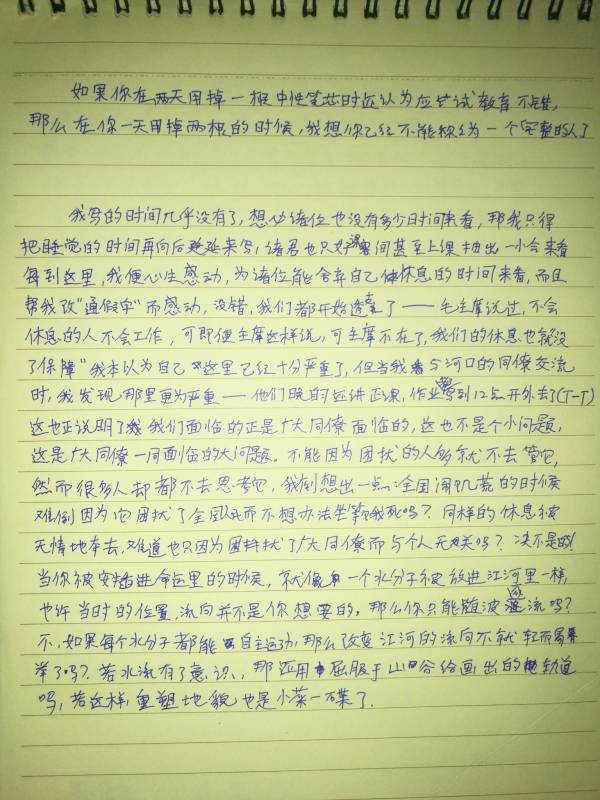 如果你在两天用掉一根中性笔芯时还认为应试教育不错,
那么在你一天用掉两根的时候,我想你已经不能称为一个完整的人了
我写的时间几乎没有了,想必诸位也没有多少日时间来看,那我只得
把睡觉的时间再向后延来写,诸君也只好课间甚至上课抽出一小会来看
每到这里,我便心生感动,为诸位能舍弃自己休息的时间来看,而且
帮我改“通假字”而感动,没错,我们都开始透支了——毛主席说过,不会
休息的人不会工作,可即便主席这样说,可主席不在了,我们的休息也就没
了保障”我本以为自己这里已经十分严重了,但当我与河口的同僚交流
时,我发现那里更为严重——他们晚自还讲正课,作业要写到12点开外去了(T-T)
这也正说明了我们面临的正是广大同僚面临的,这也不是个小问题,
这是广大同僚一同面临的大问题。不能因为困扰的人多就不去管它,
然而很多人却都不去思考它,我倒想出一点:全国闹饥荒的时候
难倒因为它困扰了全国人民而不想办法坐等饿死吗?同样的休息被
无情地夺去,难道也只因为困扰了广大同僚而与个人无关吗?决不是的!
当你被安插进命运里的时候,就像一个水分子被放进江河里一样,
也许当时的位置,流向并不是你想要的,那么你只能随波逐流吗?
不,如果每个水分子都能自主运动,那么改变江河的流向不就轻而易
举了吗?若水流有了意识,那还用屈服于山谷给画出的轨道
吗,若这样,重塑地貌也是小菜一碟了.